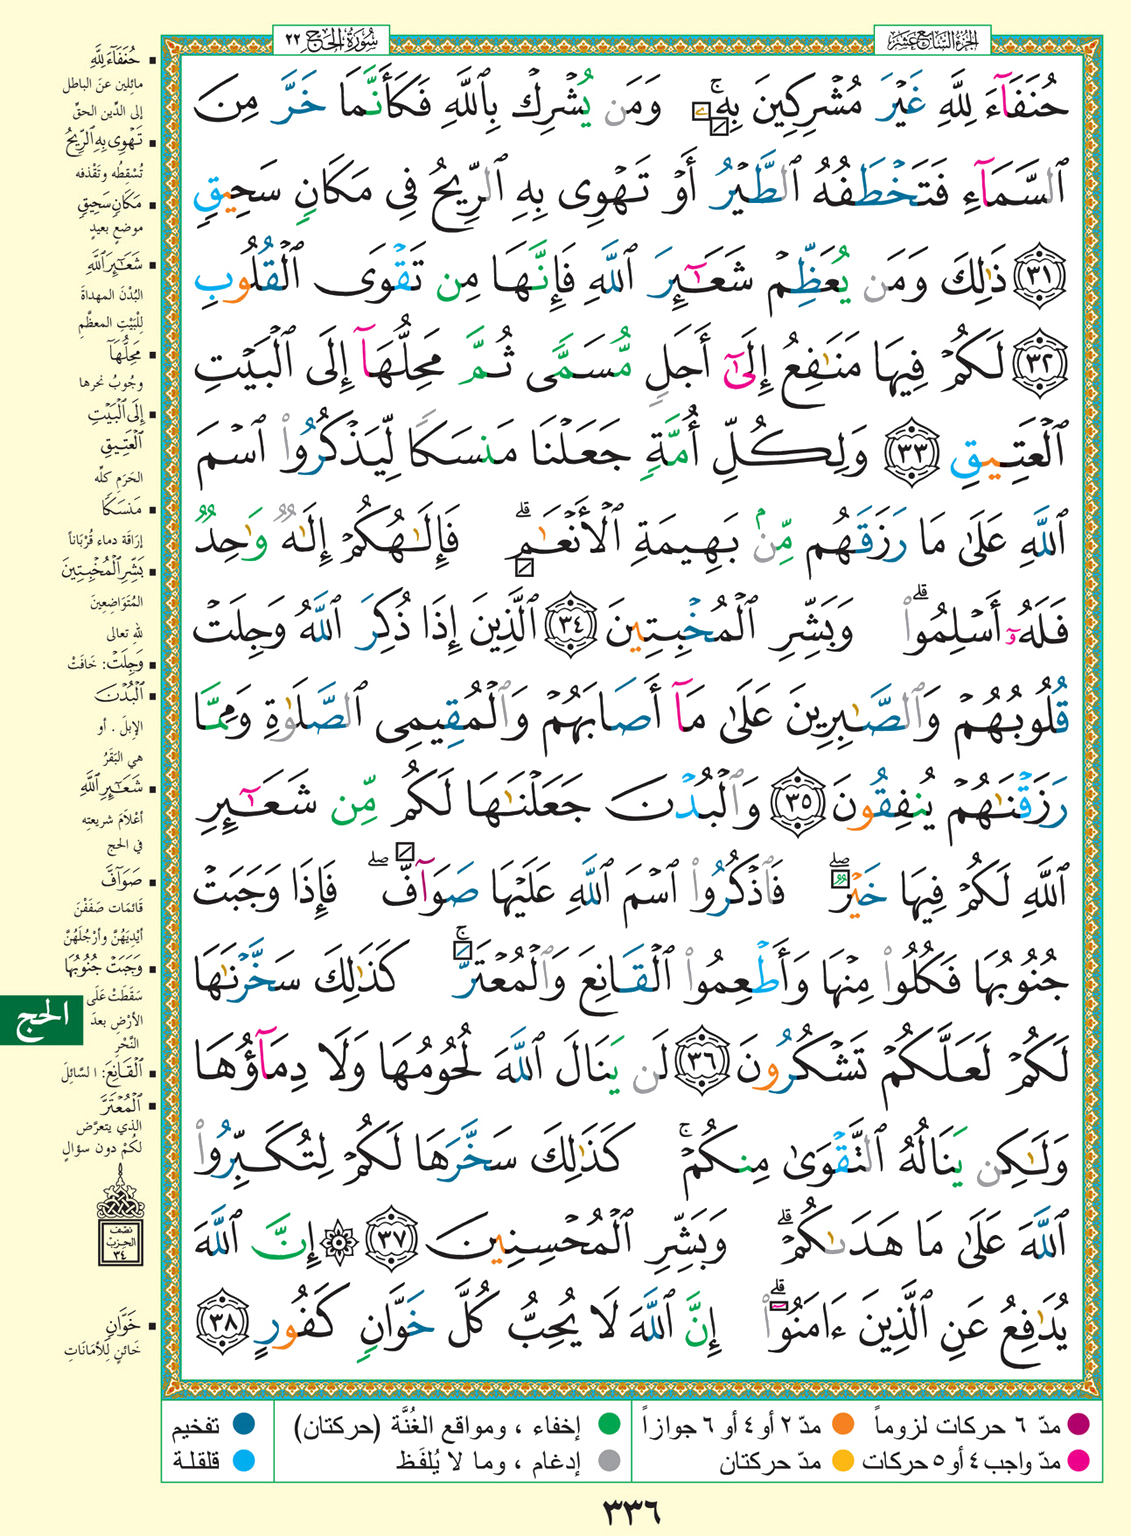 الجزء السابع عشر
سورة الحج ٢٢
حُنَفَآءَ لِلَّهِ غَيْرَ مُشْرِكِينَ بِهِۦۚ وَمَن يُشْرِكْ بِٱللَّهِ فَكَأَنَّمَا خَرَّ مِنَ
ٱلسَّمَآءِ فَتَخْطَفُهُ ٱلطَّيْرُ أَوْ تَهْوِى بِهِ ٱلرِّيحُ فِى مَكَانٍ سَحِيقٍ
٣١ ذَٰلِكَ وَمَن يُعَظِّمْ شَعَـٰٓئِرَ ٱللَّهِ فَإِنَّهَا مِن تَقْوَى ٱلْقُلُوبِ
٣٢ لَكُمْ فِيهَا مَنَـٰفِعُ إِلَىٰٓ أَجَلٍ مُّسَمًّى ثُمَّ مَحِلُّهَآ إِلَى ٱلْبَيْتِ
ٱلْعَتِيقِ ٣٣ وَلِكُلِّ أُمَّةٍ جَعَلْنَا مَنسَكًا لِّيَذْكُرُوا۟ ٱسْمَ
ٱللَّهِ عَلَىٰ مَا رَزَقَهُم مِّنۢ بَهِيمَةِ ٱلْأَنْعَـٰمِۗ فَإِلَـٰهُكُمْ إِلَـٰهٌ وَٰحِدٌ
فَلَهُۥٓ أَسْلِمُوا۟ۗ وَبَشِّرِ ٱلْمُخْبِتِينَ ٣٤ ٱلَّذِينَ إِذَا ذُكِرَ ٱللَّهُ وَجِلَتْ
قُلُوبُهُمْ وَٱلصَّـٰبِرِينَ عَلَىٰ مَآ أَصَابَهُمْ وَٱلْمُقِيمِى ٱلصَّلَوٰةِ وَمِمَّا
رَزَقْنَـٰهُمْ يُنفِقُونَ ٣٥ وَٱلْبُدْنَ جَعَلْنَـٰهَا لَكُم مِّن شَعَـٰٓئِرِ
ٱللَّهِ لَكُمْ فِيهَا خَيْرٌۖ فَٱذْكُرُوا۟ ٱسْمَ ٱللَّهِ عَلَيْهَا صَوَآفَّۖ فَإِذَا وَجَبَتْ
جُنُوبُهَا فَكُلُوا۟ مِنْهَا وَأَطْعِمُوا۟ ٱلْقَانِعَ وَٱلْمُعْتَرَّۚ كَذَٰلِكَ سَخَّرْنَـٰهَا
لَكُمْ لَعَلَّكُمْ تَشْكُرُونَ ٣٦ لَن يَنَالَ ٱللَّهَ لُحُومُهَا وَلَا دِمَآؤُهَا
وَلَـٰكِن يَنَالُهُ ٱلتَّقْوَىٰ مِنكُمْۚ كَذَٰلِكَ سَخَّرَهَا لَكُمْ لِتُكَبِّرُوا۟
ٱللَّهَ عَلَىٰ مَا هَدَىٰكُمْۗ وَبَشِّرِ ٱلْمُحْسِنِينَ ٣٧ ۞ إِنَّ ٱللَّهَ
يُدَٰفِعُ عَنِ ٱلَّذِينَ ءَامَنُوٓا۟ۗ إِنَّ ٱللَّهَ لَا يُحِبُّ كُلَّ خَوَّانٍ كَفُورٍ ٣٨
حُنَفَآءَ لِلَّهِ
مائِلين عنَ الباطل
إلى الدِّين الحقِّ
تَهْوِى بِهِ ٱلرِّيحُ
تُسْقِطُه وتَقْذفه
مَكَانٍ سَحِيقٍ
موضعٍ بعيدٍ
شَعَـٰٓئِرَ ٱللَّهِ
البُدْنَ المهداةَ
لِلْبَيْتِ المعظَّمِ
مَحِلُّهَآ
وجُوبُ نحرها
إِلَى ٱلْبَيْتِ
ٱلْعَتِيقِ
الحَرَمِ كلِّه
مَنسَكًا
إرَاقَةَ دماء قُرْبَاناً
بَشِّرِ ٱلْمُخْبِتِينَ
المُتَوَاضِعِينَ
للهِ تعالى
وَجِلَتْ: خَافَتْ
ٱلْبُدْنَ
الإبلَ . أو
هي البَقَرُ
شَعَـٰٓئِرِ ٱللَّهِ
أعْلاَمَ شريعتِه
في الحج
صَوَآفَّ
قَائمَات صَفَفْنَ
أيْدِيَهُنَّ وأرْجُلَهُنَّ
وَجَبَتْ جُنُوبُهَا
سَقَطَتْ عَلَى
الأرْضِ بعدَ
النَّحْرِ
ٱلْقَانِعَ: السَّائِلَ
ٱلْمُعْتَرَّ
الذي يتعرَّض
لكُمْ دون سؤالٍ
نصف
الحزب
٣٤
خَوَّانٍ
خَائنٍ لِلأمَانَاتِ
الحج
مدّ ٦ حركات لزوماً
مدّ ٢ أو ٤ أو ٦ جوازاً
إخفاء ، ومواقع الغُنَّة (حركتان)
تفخيم
مدّ واجب ٤ أو ٥ حركات
مدّ حركتان
إدغام ، وما لا يُلفَظ
قلقلة
٣٣٦